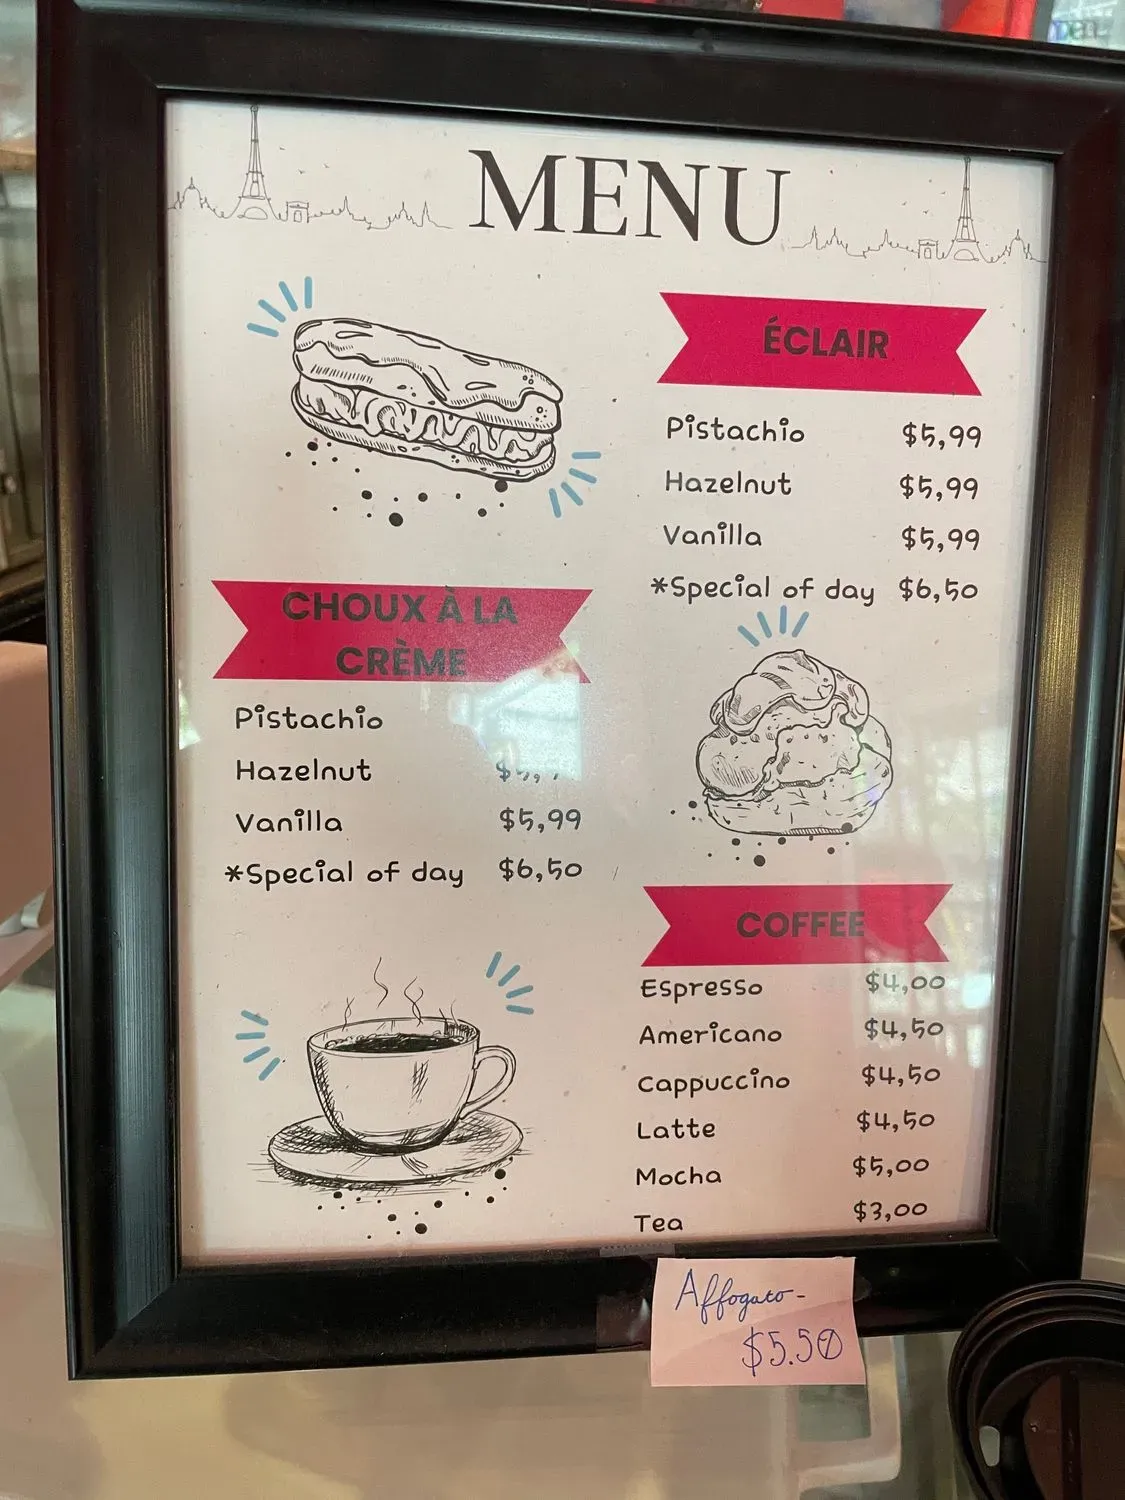 MENU
ÉCLAIR
Pistachio $5,99
Hazelnut $5,99
Vanilla $5,99
*Special of day $6,50
CHOUX À LA
CRÈME
Pistachio
Hazelnut
Vanilla $5,99
*Special of day $6,50
COFFEE
Espresso $4,00
Americano $4,50
Cappuccino $4,50
Latte $4,50
Mocha $5,00
Tea $3,00
Affogato-
$5.50